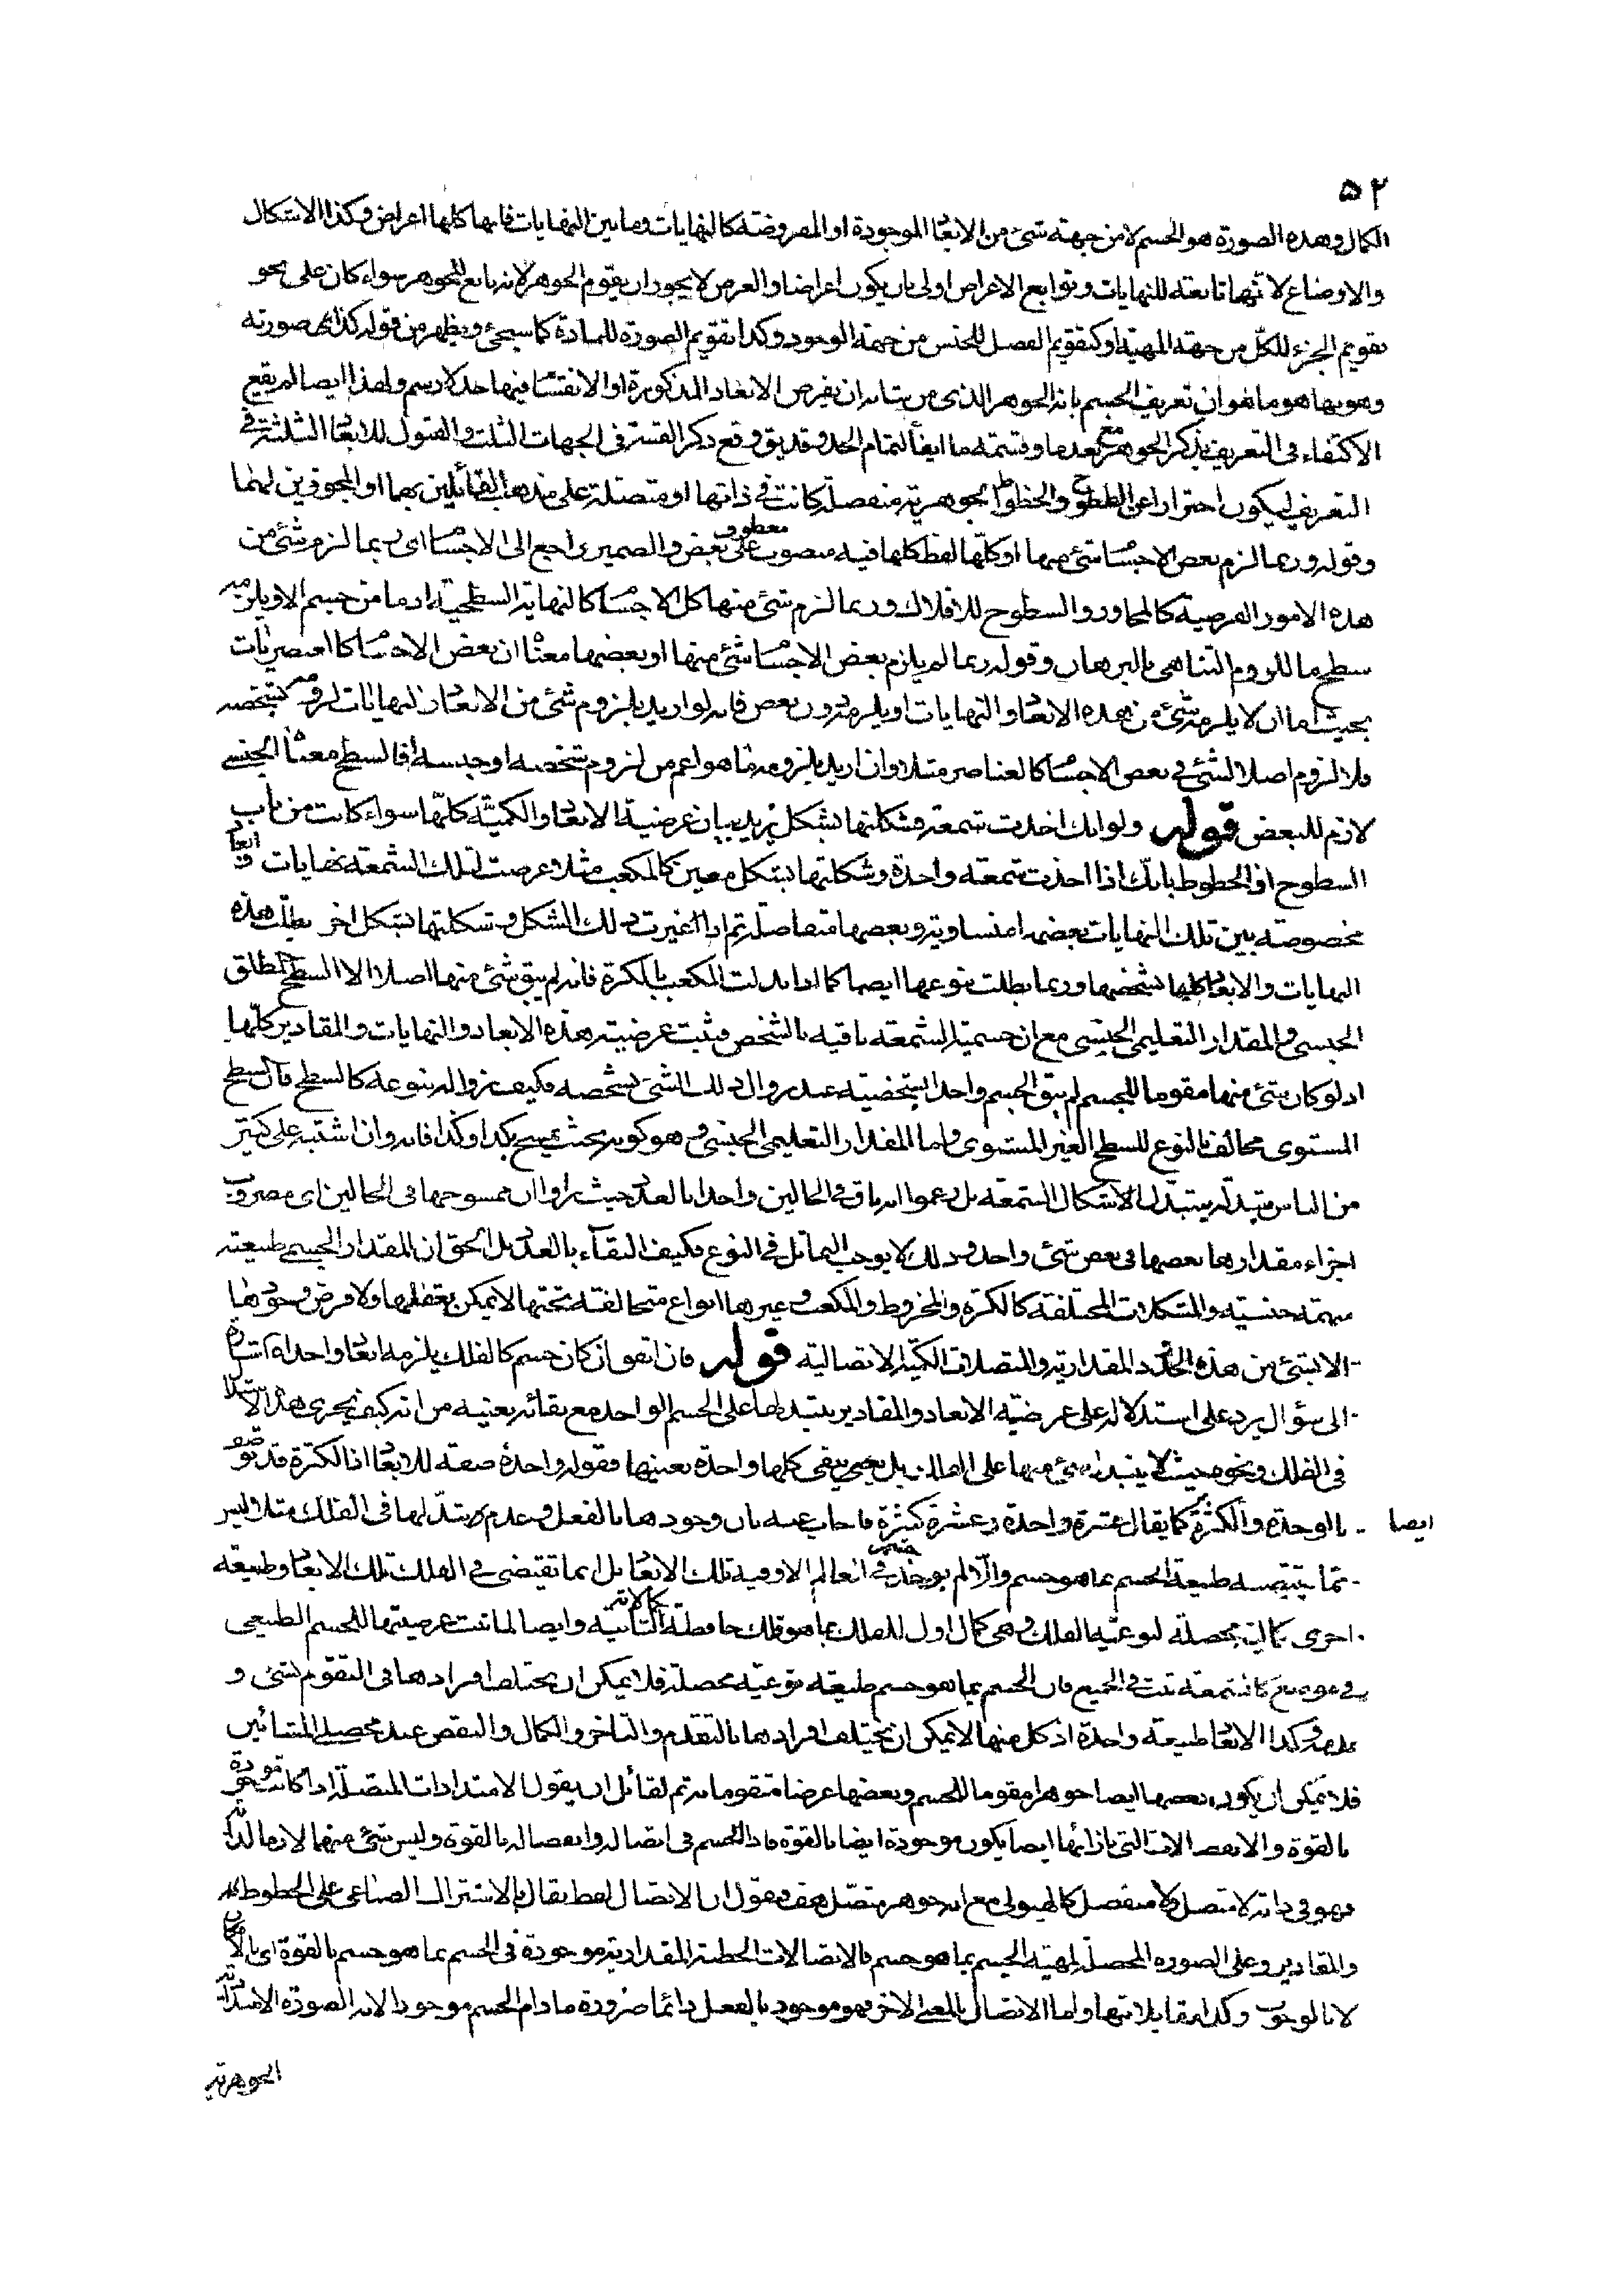 ۵۲
الكمال وهذه الصورة هو الجسم لا من جهة شئ من الابعاد الموجودة او المفروضة كالنهايات وما بين النهايات فانها كلها اعراض وكذا الاشكال
والاوضاع لانها تابعة للنهايات وتوابع الاعراض اولى بان يكون اعراضا والعرض لا يجوز ان يقوم الجوهر لانه تابع للجوهر سواء كان على نحو
تقويم الجزء للكل من جهة المهية او كتقويم الفصل للجنس من جهة الوجود وكذا تقويم الصورة للمادة كما سيجئ ويظهر من قوله كذا اى صورته
وهو بها هو ما هو ان تعريف الجسم بانه الجوهر الذى من شانه ان يفرض الابعاد المذكورة او الانقسام فيها حد لا رسم ولهذا ايضا لم يقع
الاكتفاء فى التعريف بذكر الجوهر مع بعدها وقسمة ما ايفاً لتمام الحد وقد يق وقع ذكر القسمة فى الجهات الثلث والقبول للابعاد الثلثة فى
التعريف ليكون احترازا عن السطوح والخطوط الجوهرية منفصلة كانت فى ذاتها او متصلة على مذهب القائلين بهما او المجوزين لهما
وقوله وربما لزم بعض الاجسام شئ منها او كلها لفظ كلها فيه منصوب معطوف على بعض والضمير راجع الى الاجسام اى ربما لزم شئ من
هذه الامور العرضية كالمحاور والسطوح للافلاك وربما لزم شئ منها كل الاجسام كالنهاية السطحية اذ ما من جسم الا ويلزمه
سطح ما للزوم التناهى بالبرهان وقوله ربما لم يلزم بعض الاجسام شئ منها او بعضها معناه ان بعض الاجسام كالعنصريات
بحيث اما ان لا يلزمه شئ من هذه الابعاد والنهايات او يلزمه دون بعض فانه لو اريد بلزوم شئ من الابعاد والنهايات لزومه بتشخصه
فلا لزوم اصلا لشئ فى بعض الاجسام كالعناصر مثلا وان اريد بلزومه ما هو اعم من لزوم تشخصه او جنسه فالسطح معناه الجنسى
لازم للبعض قوله ولو انك اخذت شمعة فشكلتها بشكل يريد بيان عرضية الابعاد والكمية كلها سواء كانت من باب
السطوح او الخطوط بانك اذا اخذت شمعة واحدة وشكلتها بشكل معين كالمكعب مثلا وعرضت لتلك الشمعة نهايات وابعاد
مخصوصة بين تلك النهايات بعضها متساوية وبعضها متفاضلة ثم اذا غيرت ذلك الشكل وشكلتها بشكل اخر بطلت هذه
النهايات والابعاد كلها بشخصها وربما بطلت بنوعها ايضا كما اذا بدلت المكعب بالكرة فانه لم يبق شئ منها اصلا الا السطح المطلق
الجنسى والمقدار التعليمى الجنسى مع ان جسمية الشمعة باقية بالشخص فثبت عرضية هذه الابعاد والنهايات والمقادير كلها
اذ لو كان شئ منها مقوما للجسم لم يبق الجسم واحدا بشخصيته عند زوال ذلك الشئ بشخصه فكيف زواله بنوعه كالسطح فان السطح
المستوى مخالف بالنوع للسطح الغير المستوى واما المقدار التعليمى الجنسى وهو كونه بحيث يمسح بكذا وكذا فانه وان اشتبه على كثير
من الناس تبدله بتبدل الاشكال الشمعة بل زعموا انه باق فى الحالين واحدا بالعدد حيث راوا ان ممسوحها فى الحالين اى مضروب
اجزاء مقدارها بعضها فى بعض شئ واحد وذلك لا يوجب التماثل فى النوع فكيف البقاء بالعدد بل الحق ان المقدار الجسمى طبيعته
مبهمة جنسية والمشكلات المختلفة كالكرة والمخروط والمكعب وغيرها انواع متخالفة تحتها لا يمكن تعقلها ولا فرض وجودها
الا بشئ من هذه الحدود المقدارية والمتصلات الكمية الاتصالية قوله فان اتفق ان كان جسم كالفلك يلزمه ابعاد واحدة اشارة
الى سؤال يرد على استدلاله على عرضية الابعاد والمقادير بتبدلها على الجسم الواحد مع بقائه بعينه من انه كيف يجرى هذا الاستدلال
فى الفلك ونحوه حيث لا يتبدل شئ منها على الحال بل يبقى كلها واحدة بعينها فقوله واحدة صفة للابعاد اذ الكثرة قد توصف
ايضا بالوحدة والكثرة كما يقال عشرة واحدة وعشرة كثيرة فاجاب عنه بان وجودها بالفعل وعدم تبدلها فى الفلك مثلا وليس
مما يقتضيه طبيعة الجسم بما هو جسم والا لم يوجد جسم فى العالم الا وفيه تلك الابعاد بل انما تقتضى فى الفلك تلك الابعاد طبيعة
اخرى كمالية محصلة لنوعية الفلك وهى كمال اول للفلك بما هو فلك حافظة لكمالاته الثانية وايضا لما ثبت عرضيتها للجسم الطبيعى
فى موضع كالشمعة ثبت فى الجميع فان الجسم بما هو جسم طبيعة نوعية محصلة فلا يمكن ان يختلف افرادها فى التقوم بشئ و
عدمه وكذا الابعاد طبيعة واحدة اذ كل منها لا يمكن ان يختلف افرادها بالتقدم والتاخر والكمال والنقص عند محصلى المشائين
فلا يمكن ان يكون بعضها ايضا جوهرا مقوما للجسم وبعضها عرضا متقوما به ثم لقائل ان يقول الامتدادات المتصلة اذا كانت موجودة
بالقوة والانفصالات التى بازائها ايضا يكون موجودة ايضا بالقوة فاذا الجسم فى اتصاله وانفصاله بالقوة وليس شئ منهما لازما لذاته
فهو فى ذاته لا متصل ولا منفصل كالهيولى مع انه جوهر متصل هف فنقول ان الاتصال لفظ يقال بالاشتراك الصناعى على الخطوط
والمقادير وعلى الصورة المحصلة لمهية الجسم بما هو جسم فالاتصالات الخطية المقدارية موجودة فى الجسم بما هو جسم بالقوة اى بالامكان
لا بالوجوب وكذا مقابلاتها واما الاتصال بالمعنى الاخر فهو موجود بالفعل دائما ضرورة ما دام الجسم موجودا لانه الصورة الامتدادية
الجوهرية